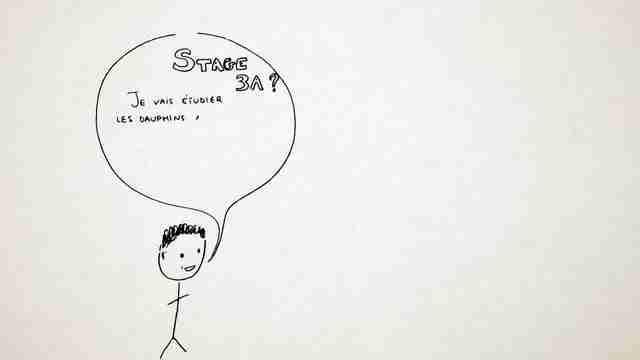 STAGE
3A ?
JE VAIS ÉTUDIER
LES DAUPHINS,